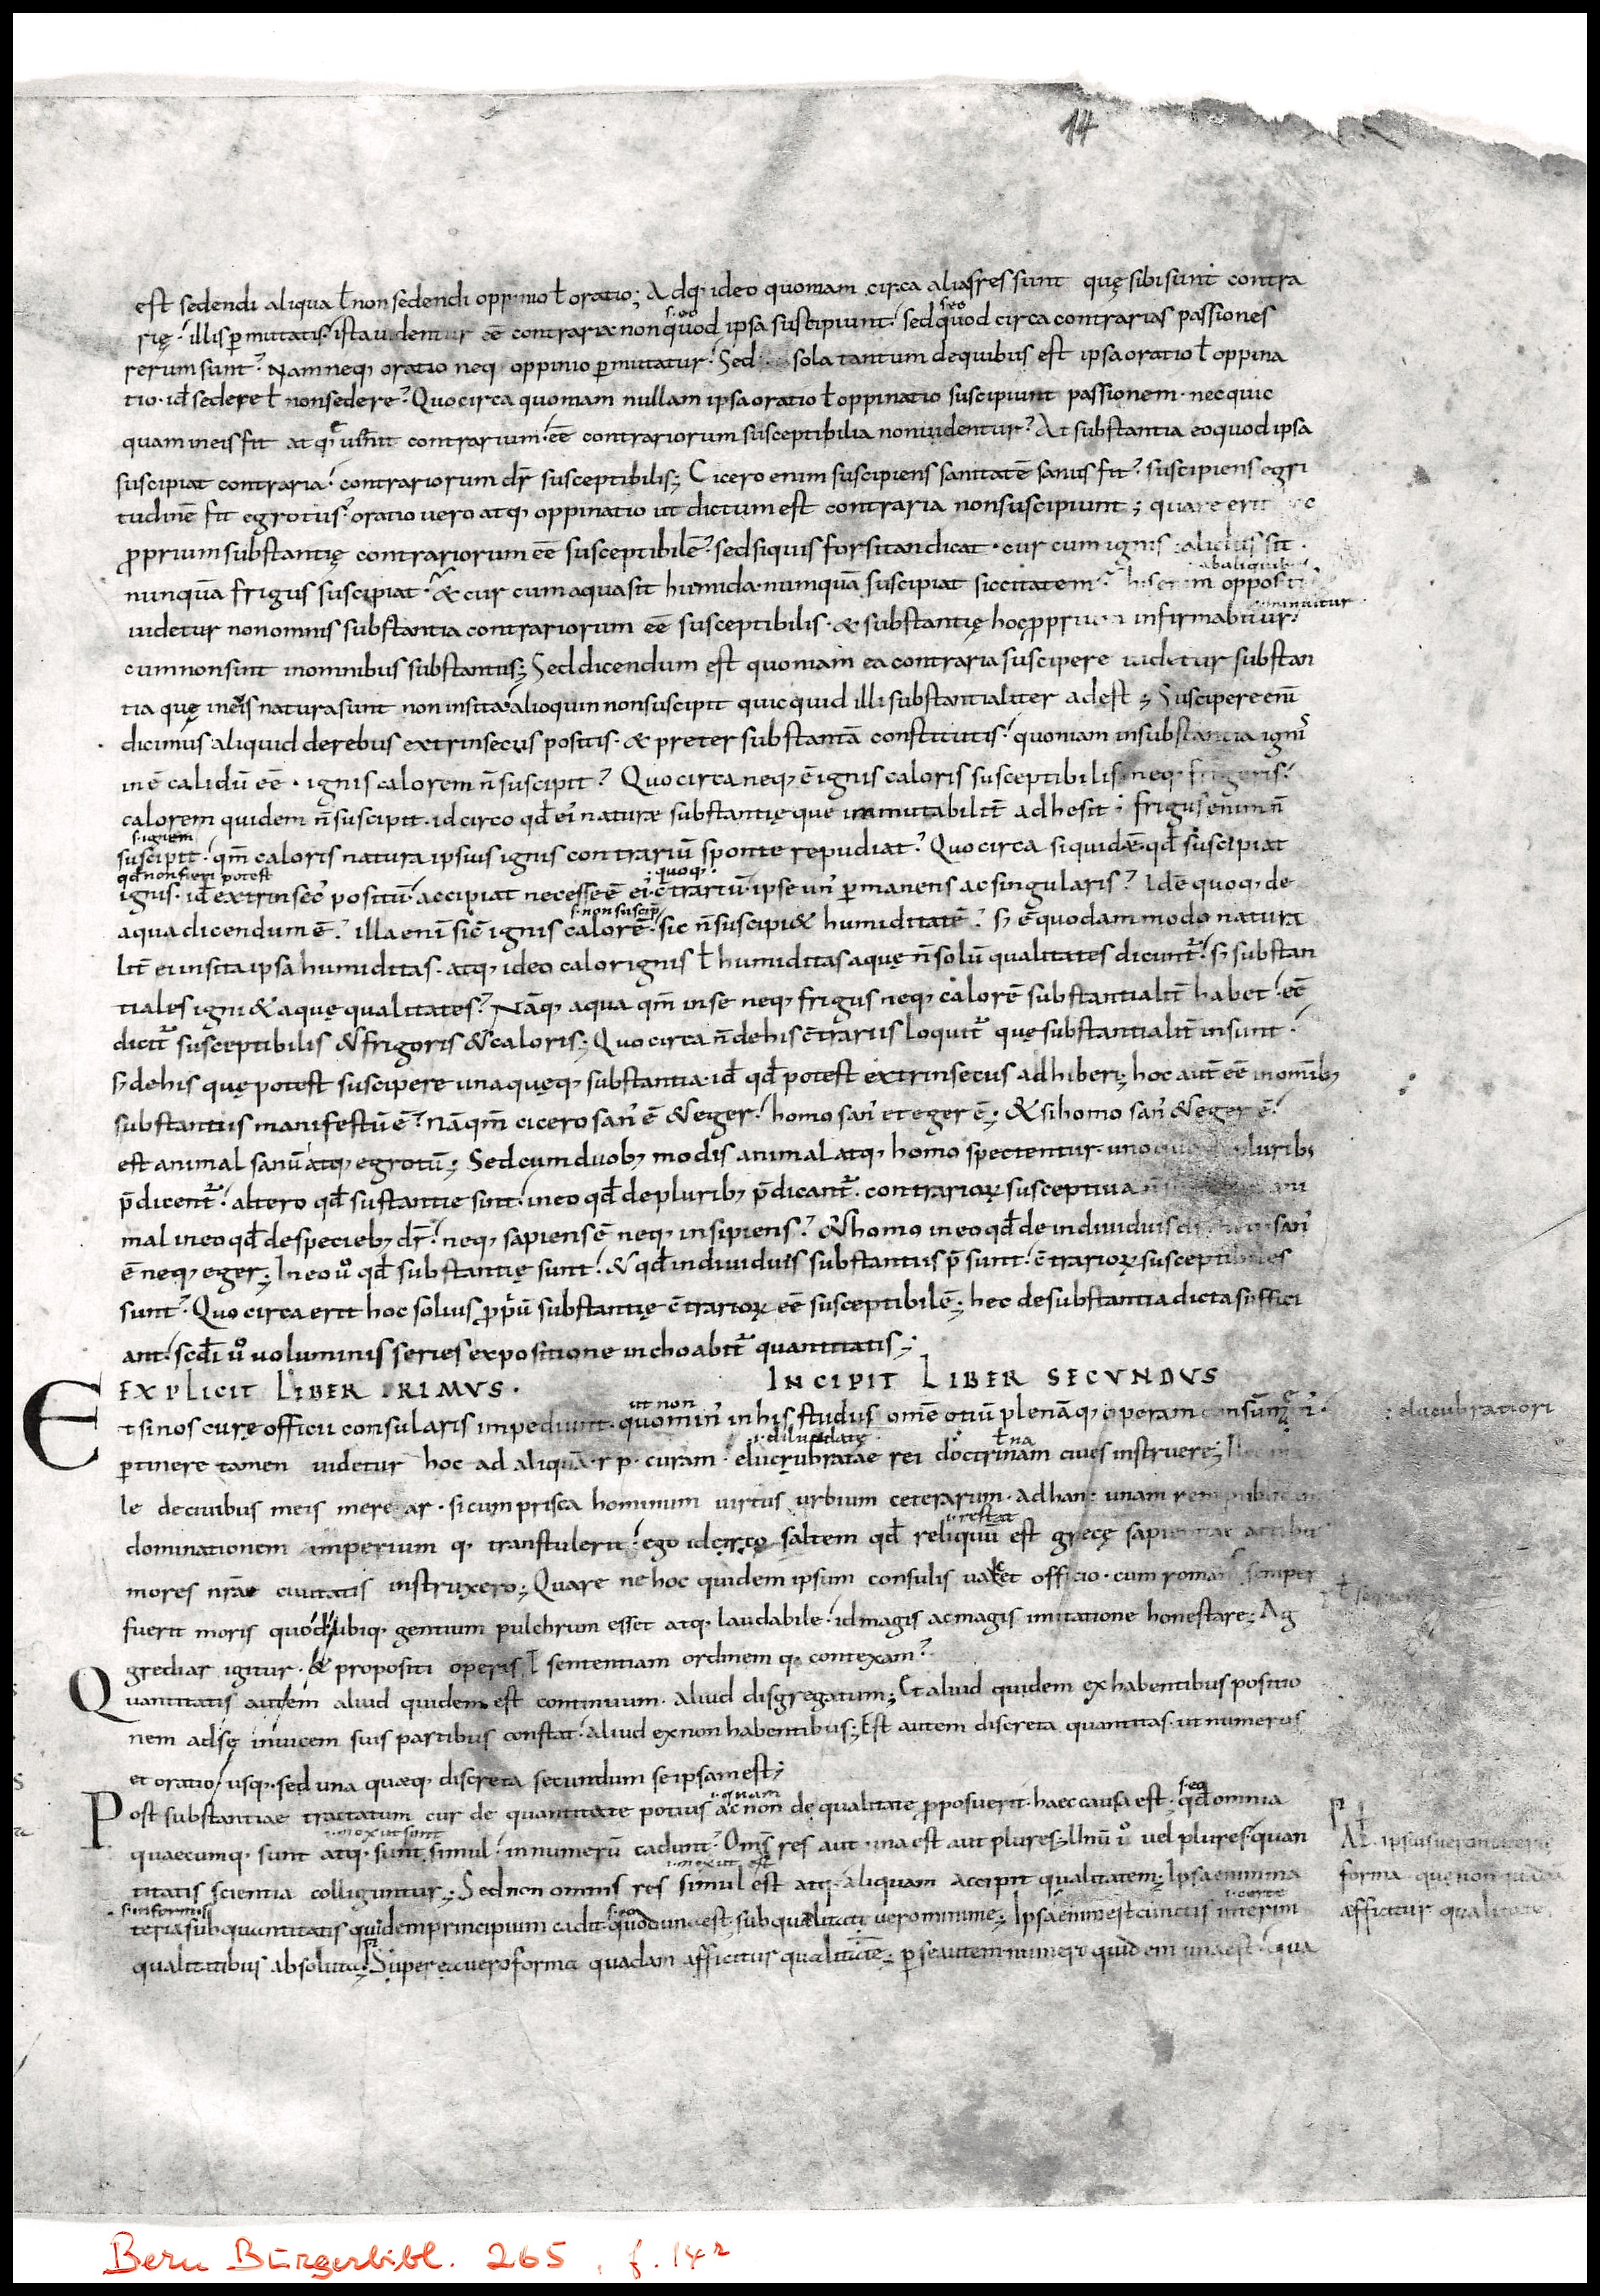 14
est sedendi aliqua ł non sedendi oppinio ł oratio; Adq; ideo quoniam circa alias res sunt quę sibi sunt contra
rię. illis ꝑmutatis. ista uidentur eē contraria non quod ipsa suscipiunt. sed quod circa contrarias passiones
s. eo s. eo
rerum sunt. Nam neq; oratio neq; oppinio ꝑmutatur. Sed sola tantum de quibus est ipsa oratio ł oppina
tio. id̄ sedere ł non sedere. Quocirca quoniam nullam ipsa oratio ł oppinatio suscipiunt passionem. nec quic
quam in eis fit contrarium. eē contrariorum susceptibilia non uidentur. At substantia eo quod ipsa
suscipiat contraria. contrariorum dr̄ susceptibilis; Cicero enim suscipiens sanitatē sanus fit. suscipiens egri
tudinē fit egrotus. oratio vero atq; oppinatio ut dictum est contraria non suscipiunt; quare erit
ꝓprium substantię contrariorum eē susceptibilē. sed si quis forsitan dicat. cur cum ignis calidus sit.
nunquā frigus suscipiat. & cur cum aqua sit humida. nunquā suscipiat siccitatem. his enim opposit
ab aliquib;
uidetur non omnis substantia contrariorum eē susceptibilis. & substantię hoc ꝓprium infirmabitur.
cum non sint in omnibus substantiis; Sed dicendum est quoniam ea contraria suscipere uidetur substan
tia quę in eis natura sunt non insita. alioquin non suscipit quicquid illi substantialiter adest; Suscipere eni̅
dicimus aliquid de rebus extrinsecus positis. & preter substantiā constitutis. quoniam in substantia igni'
in ē calidū eē. ignis calorem n̄ suscipit. Quocirca neq; ē ignis caloris susceptibilis. neq; frigoris.
calorem quidem n̄ suscipit. idcirco qd̄ ei' naturæ substantięque inmutabilit̄ adhesit. frigus enim n̄
s. ignem
suscipit. qm̄ caloris natura ipsius ignis contrariū sponte repudiat. Quocirca si quidē. qd̄ suscipiat
qd̄ non fieri potest quoq;
ignis. id̄ extrinsec' positū. accipiat necesse ē ei. c̄trariū. ipse un' ꝑmanens ac singularis. Idē quoq; de
s. non suscip̄
aqua dicendum ē. illa enī sic̄ ignis calorē. sic n̄ suscipi& humiditatē. s; ē quodammodo natura
lit̄ ei insita ipsa humiditas. atq; ideo calor ignis ł humiditas aquę n̄ solū qualitates dicunt̄. s; substan
tiales igni & aquę qualitates. Nāq; aqua qm̄ in se neq; frigus neq; calorē substantialit̄ habet. eē
dicit̄ susceptibilis & frigoris & caloris; Quocirca n̄ de his c̄trariis loquit̄ quę substantialit̄ insunt.
s; de his quę potest suscipere unaquęq; substantia. id̄ qd̄ potest extrinsecus adhiberi; hoc aut̄ eē in omīb;
substantiis manifestū ē. Nā qm̄ cicero san' ē & eger. homo san' et eger ē; & si homo san' & eger ē.
est animal sanū atq; egrotū; Sed cum duob; modis animal atq; homo spectentur. uno pluribs
p̄dicent̄. altero qd̄ sustantie sint. in eo qd̄ de plurib; p̄dicant̄. contrarioꝝ susceptiua n̄
mal in eo qd̄ de specieb; dr̄. neq; sapiens ē neq; insipiens. & homo in eo qd̄ de indiuiduis san'
ē neq; eger; In eo ū qd̄ substantię sunt. & qd̄ indiuiduis substantiis p̄ sunt. c̄trarioꝝ susceptibiles
sunt. Quocirca erit hoc solius ꝓpriū substantię c̄trarioꝝ eē susceptibilē; hec de substantia dicta suffici
ant. scd̄i ū voluminis series expositione inchoabit̄ quantitatis;
EXPLICIT LIBER PRIMVS. INCIPIT LIBER SECVNDVS
ut non
Et si nos curę officii consularis impediunt. quomin' in his studiis omē otiū plenāq; operam consum
: elucubratiori
ꝑtinere tamen uidetur hoc ad aliquā. r p. curam. elucubratæ rei doctrinam ciues instruere;
le de ciuibus meis merear. si cum prisca hominum uirtus urbium ceterarum. ad hanc unam rem
i. restat
dominationem imperium q; transtulerit. ego id circo saltem qd̄ reliquū est grecę sapientiae artibus
mores nr̄ae ciuitatis instruxero; Quare ne hoc quidem ipsum consulis uacet officio. cum romani semper
fuerit moris quod ubiq; gentium pulchrum esset atq; laudabile. id magis ac magis imitatione honestare; Ag
grediar igitur. & propositi operis sententiam ordinem q; contexam.
Quantitatis autem aliud quidem est continuum. aliud disgregatum; Et aliud quidem ex habentibus positio
nem ad sę inuicem suis partibus constat. aliud ex non habentibus; Est autem discreta quantitas. ut numerus
et oratio. usq; sed una quæq; discreta secundum se ipsam est;
i. quam s. eo
Post substantiae tractatum cur de quantitate potius ac non de qualitate ꝓposuerit. haec causa est. qd̄ omnia
quaecumq; sunt atq; sunt simul. in numerū cadunt. Omīs res aut una est aut plures; Unū ū vel plures. quan
titatis scientia colliguntur; Sed non omnis res simul est atq; aliquam accipit qualitatem; Ipsa enim ma
s. informis
teria sub quantitatis quidem principium cadit. quod una est. sub qualitati vero minime; Ipsa enim est cunctis interim
qualitatibus absoluta; Super ea vero forma quadam afficitur qualitatē; ꝑ se autem numero quidem una est. qua
forma. quę non
æfficitur qualitate
Bern Bürgerbibl. 265, f. 14r